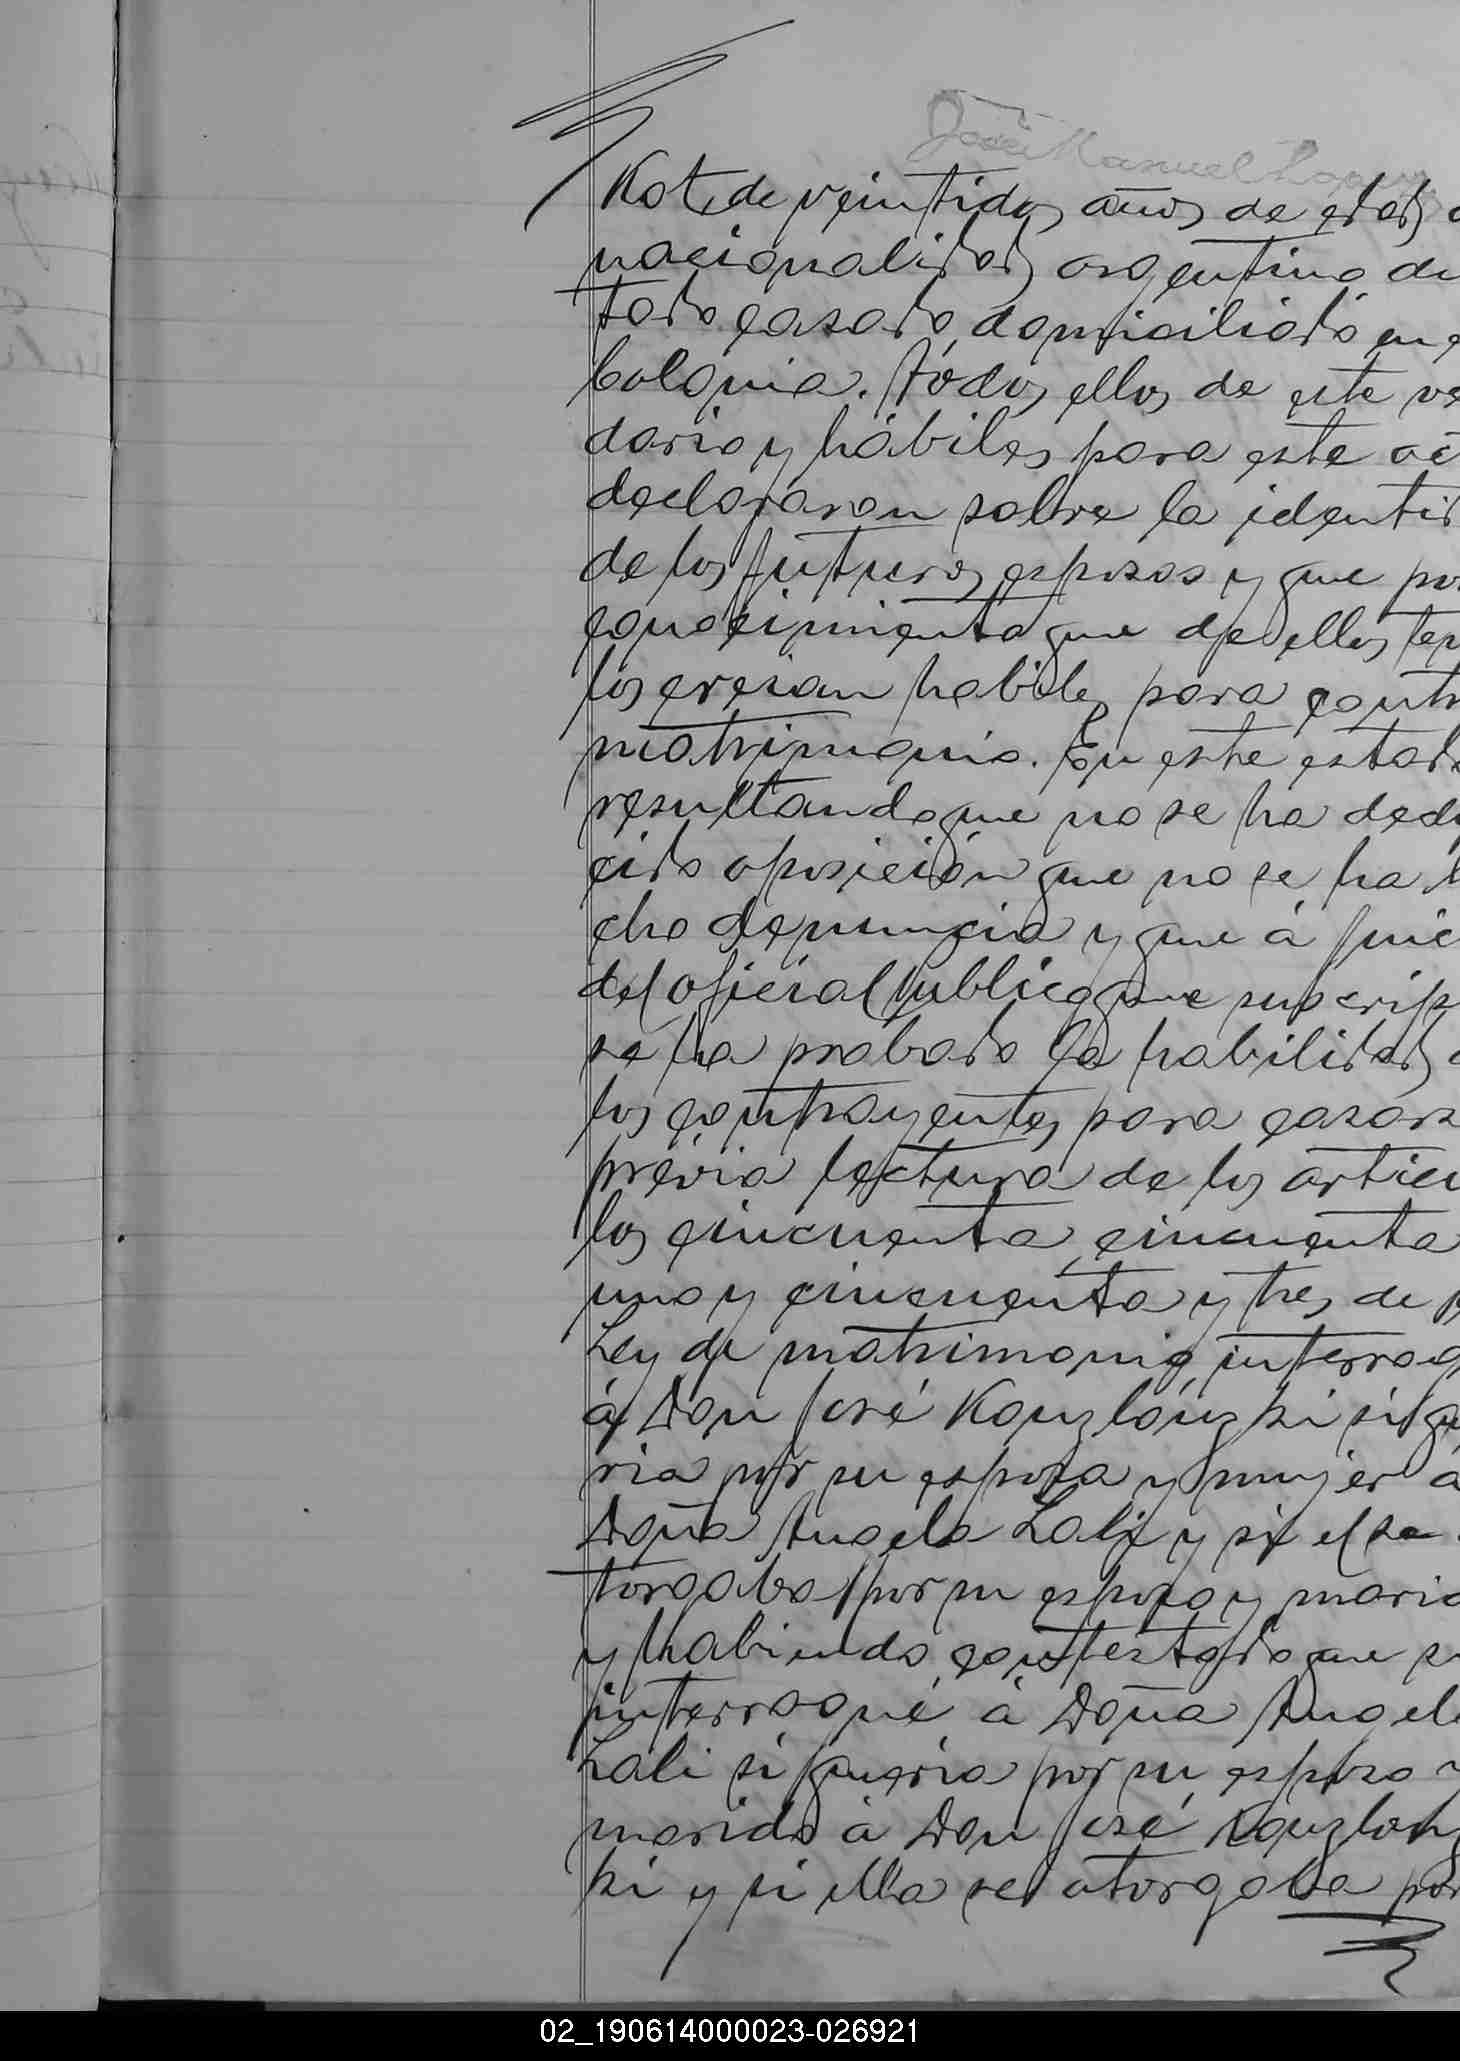 José Manuel
Kot, de veintidos años de edad,
nacionalidad argentino de
tado casado, domiciliado en
Colonia. Todos ellos de este ve
dario y hábiles para este ac
declararon sobre la identid
de los futuros esposos y que por
conocimiento que de ellos ten
los creian habiles para contr
matrimonio. En este estado
resultando que no se ha dedu
cido oposición que no se ha h
cho denuncia y que á juic
del oficial publico que suscrip
se ha probado la habilidad
los contrayentes para casars
prévia lectura de los artícu
los cincuenta, cincuenta
uno y cincuenta y tres de
Ley de matrimonio, interrog
á Don José Konzlouzki si qu
ria por su esposa y mujer á
Doña Angela Lali y si el se
torgaba por su esposo y marid
y habiendo contestado que s
interrogué á Doña Angela
Lali si queria por su esposo y
marido á Don José Konzlouz
ki y si ella se otorgaba por
02_190614000023-026921